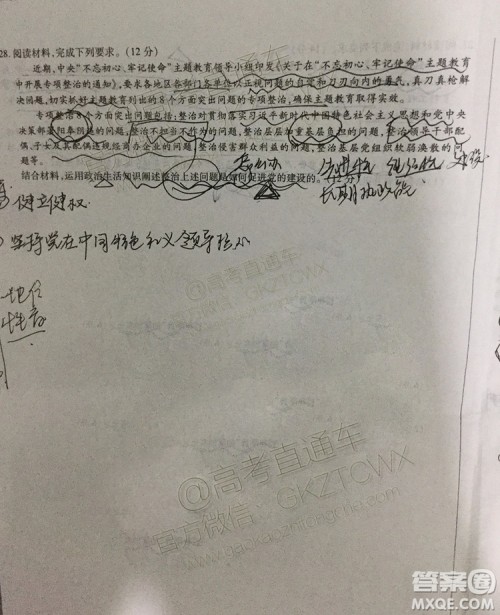 28. 阅读材料,完成下列要求。(12 分)
近期,中央“不忘初心、牢记使命”主题教育领导小组印发《关于在“不忘初心、牢记使命”主题教
育中开展专项整治的通知》,要求各地区各部门各单位以正视问题的自觉和刀刃向内的勇气,真刀真枪解
决问题,切实抓好主题教育列出的 8 个方面突出问题的专项整治,确保主题教育取得实效。
专项整治 8 个方面突出问题包括:整治对贯彻落实习近平新时代中国特色社会主义思想和党中央
决策部署阳奉阴违的问题,整治不担当不作为的问题,整治层层加重基层负担的问题,整治领导干部配
偶、子女及其配偶违规经商办企业的问题,整治侵害群众利益的问题,整治基层党组织软弱涣散的问
题等。
结合材料,运用政治生活知识阐述整治上述问题是如何促进党的建设的。(12分)
先进性 纯洁性 建设
长期执政能
坚持党在中国特色 领导核心
地位
性质
@高考直通车
官方微信:GKZTCWX
答案圈
MXQE.COM